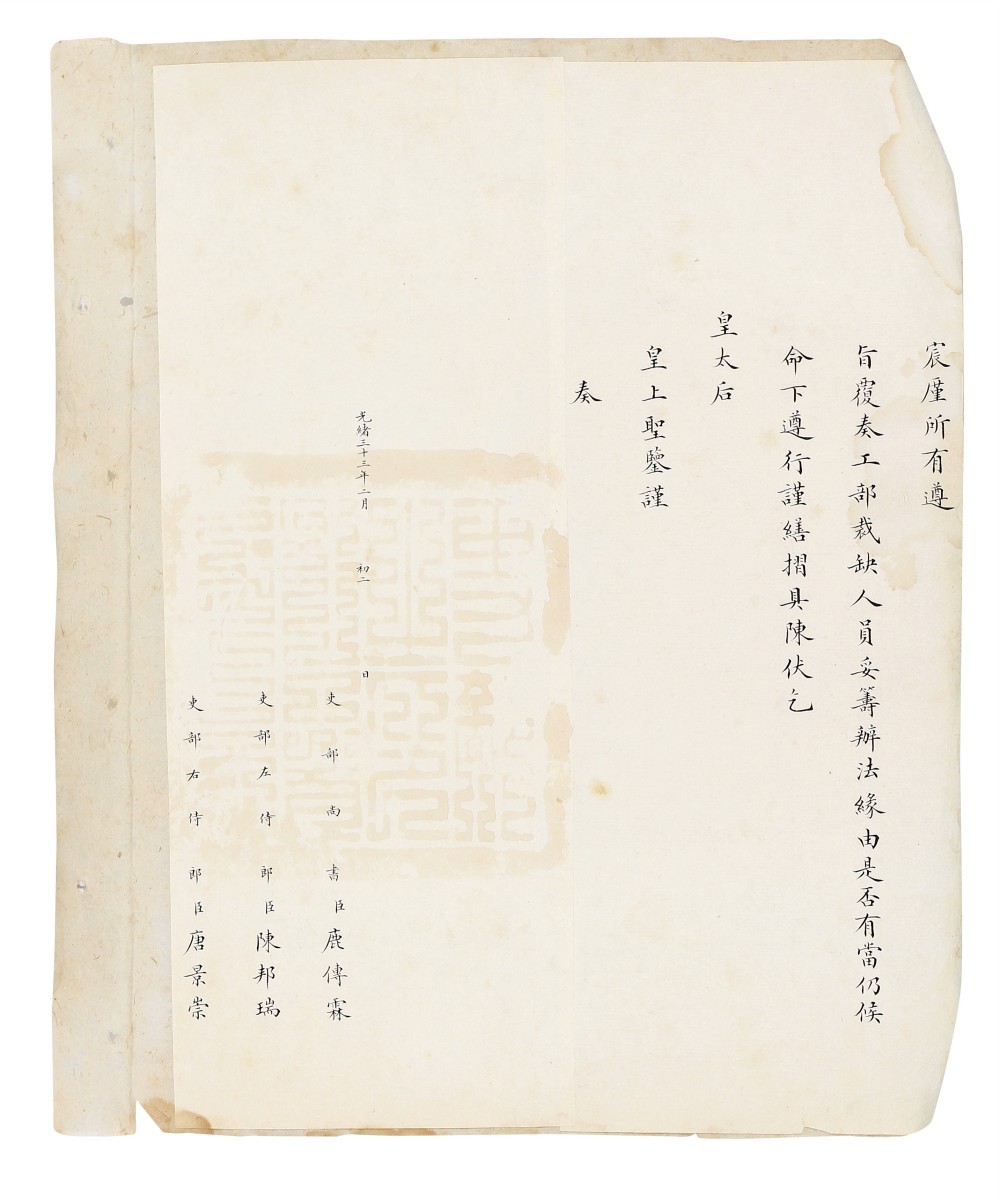 宸廑所有遵
旨覆奏工部裁缺人員妥籌辦法緣由是否有當仍候
命下遵行謹繕摺具陳伏乞
皇太后
皇上聖鑒謹
奏
光緒三十三年二月初二日
吏部尚書臣鹿傳霖
吏部左侍郎臣陳邦瑞
吏部右侍郎臣唐景崇